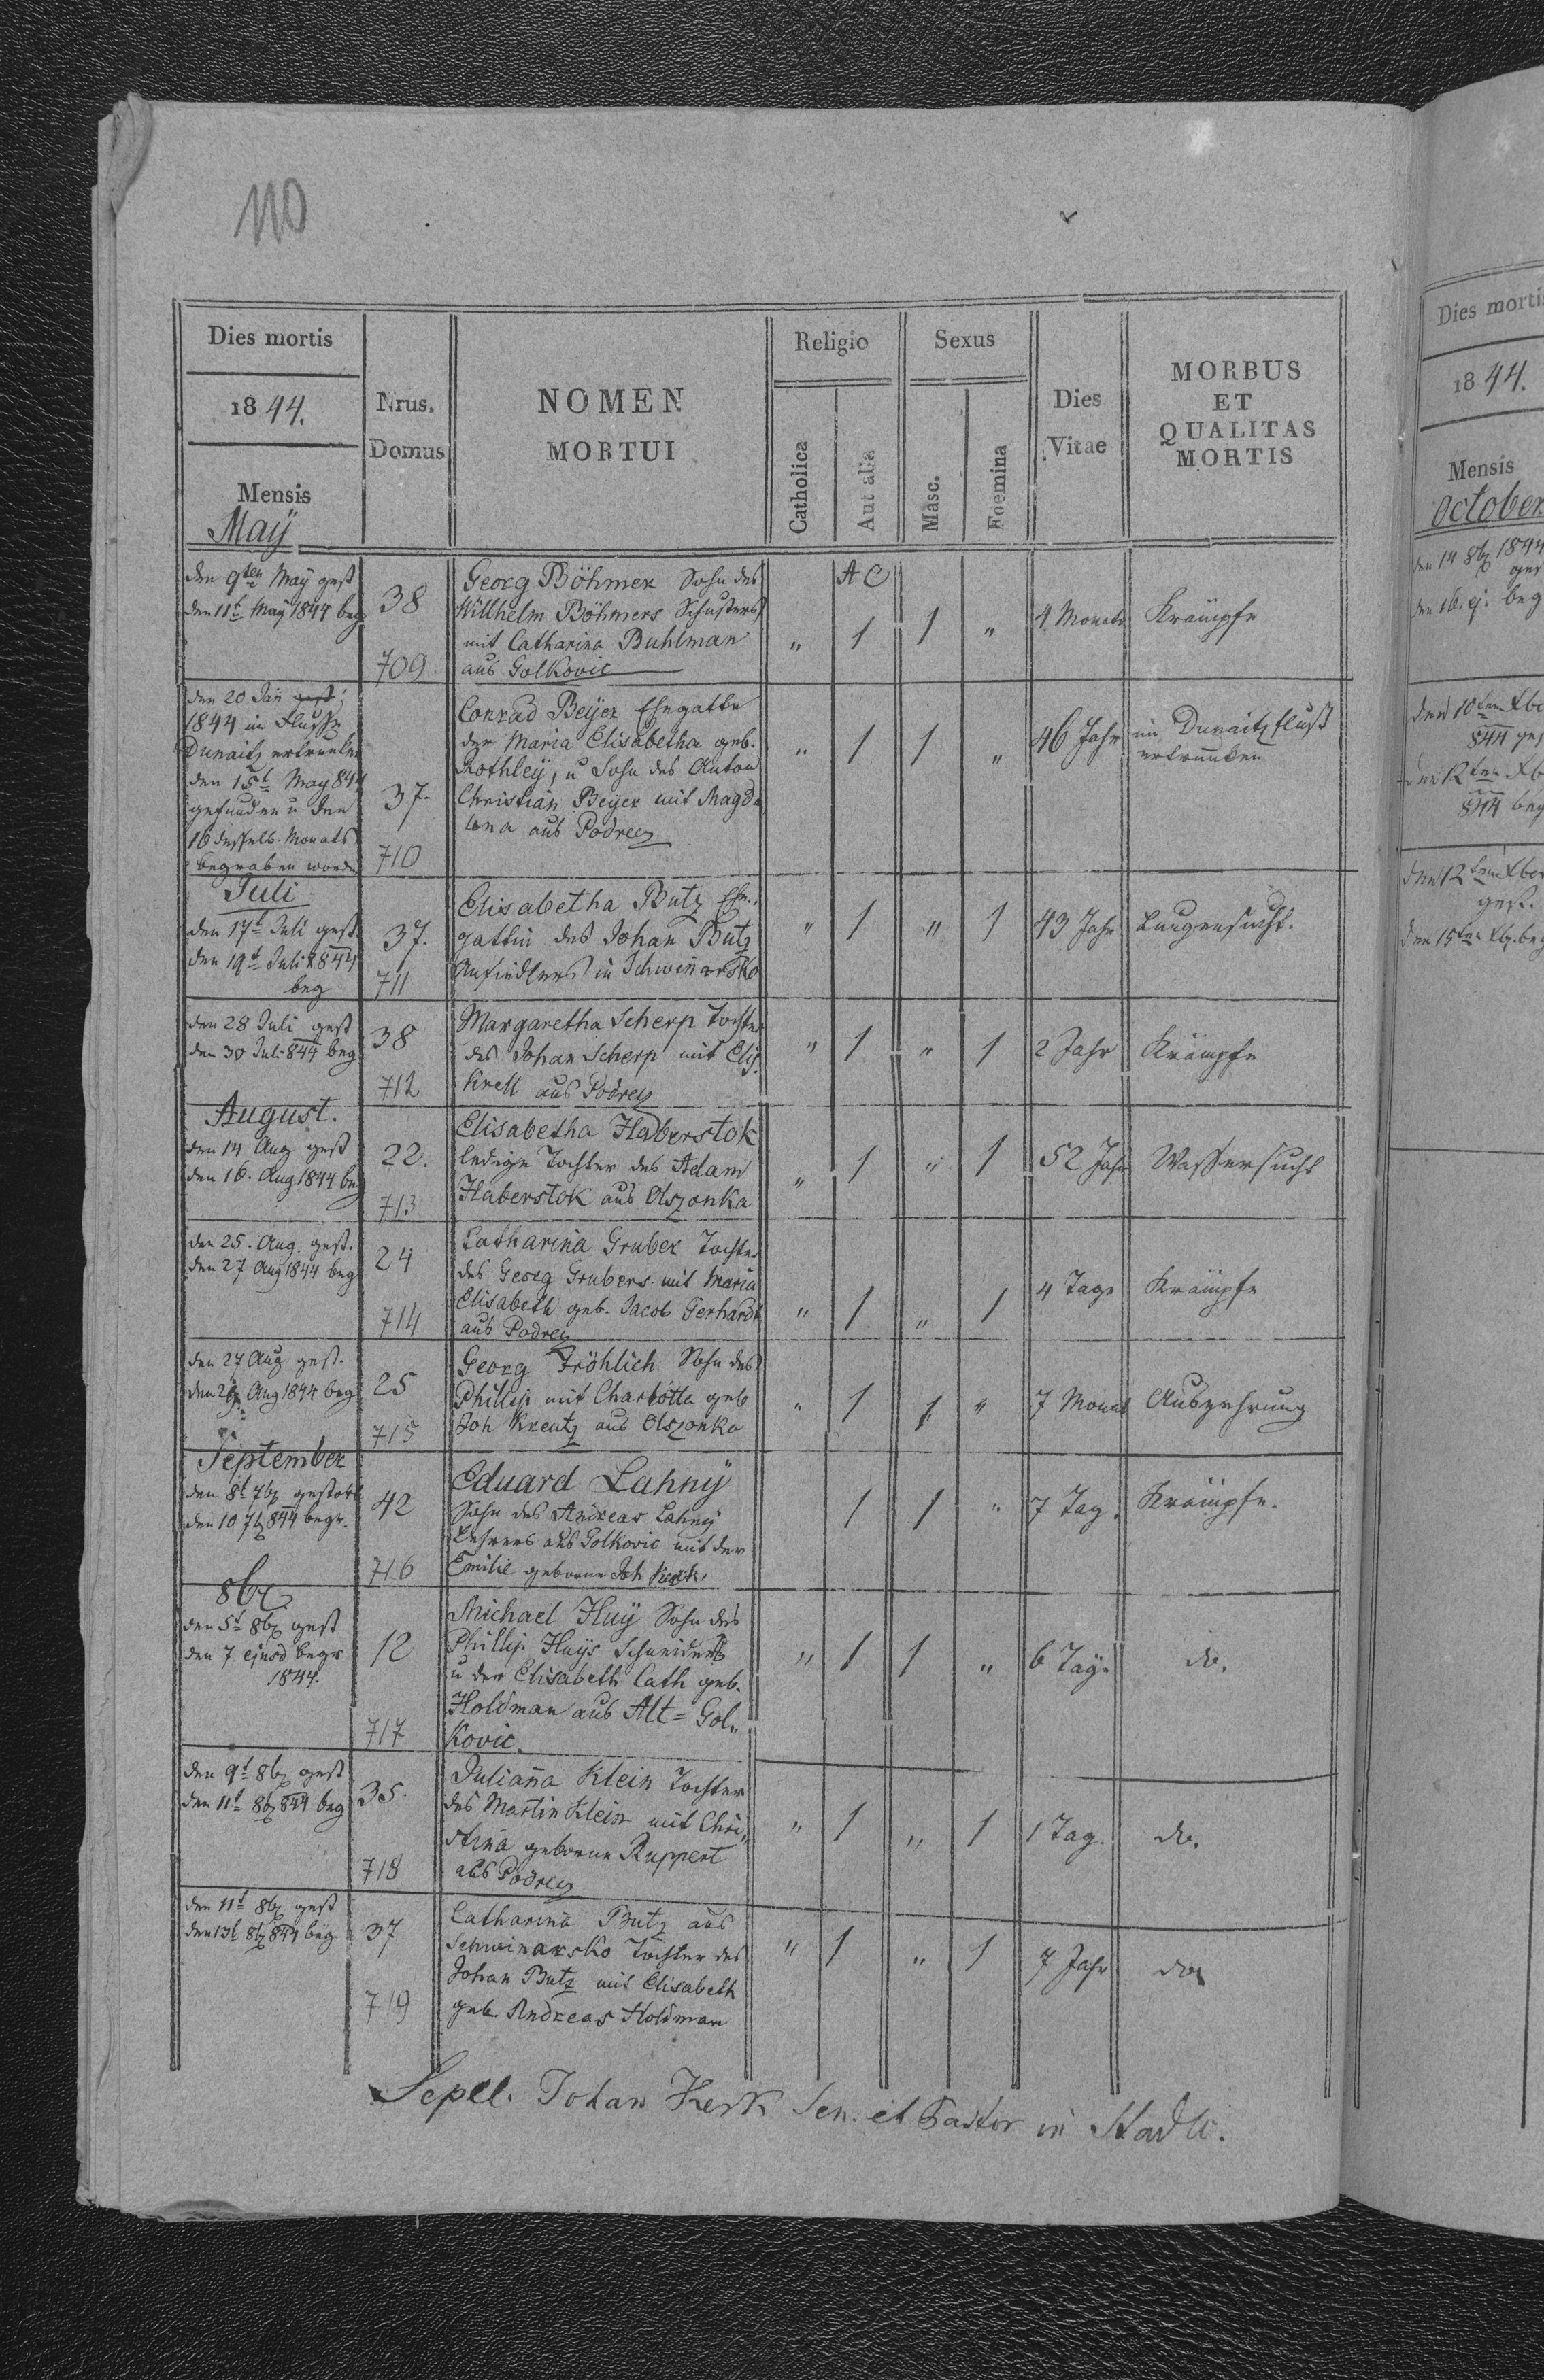 110
Dies mortis
1844.
Mensis
Maÿ
Nrus. Domus
NOMEN
MORTUI
Religio
Catholica
Aut alia
Sexus
Masc.
Foemina
Dies
Vitae
MORBUS
ET
QUALITAS
MORTIS
den 9ten Maÿ gest
den 11t Maÿ 1844 beg
38
709
Georg Böhmer Sohn des
Willhelm Böhmers Schusters
mit Catharina Buhlman
aus Golkovic
" A C 1 1 " 4 Monate Krämpfe
den 20 Jäñ gest
1844 in Flusse
Dunaitz ertrunken
den 15t May 844
gefunden u den
16 desselb. Monats
begraben worden
37-
710
Conrad Beÿer Ehegatte
der Maria Elisabetha geb.
Rothleÿ, u Sohn des Anton
Christian Beÿer mit Magda
lena aus Podrecz
" 1 1 " 46 Jahr im Dunaitz fluß
ertrunken
Juli
den 17t Juli gest
den 19t Juli 844
beg
37.
711
Elisabetha Butz Ehe.,
gattin des Johan Butz
Ansiedlers in Schwinarsko
" 1 " 1 43 Jahr Lungensucht.
den 28 Juli gest
den 30 Juli 844 beg
38
712
Margaretha Scherp Tochter
des Johan Scherp mit Elis.
Krell aus Podrecz
" 1 " 1 2 Jahr Krämpfe
August.
den 14 Aug gest
den 16. Aug 1844 beg
22.
713
Elisabetha Haberstok
ledige Tochter des Adam
Haberstok aus Olszonka
" 1 " 1 52 Jahr Wassersucht
den 25. Aug. gest.
den 27 Aug 1844 beg
24
714
Catharina Gruber Tochter
des Georg Grubers mit Maria
Elisabeth geb. Jacob Gerhardt
aus Podrecz
" 1 " 1 4 Tage Krämpfe
den 27 Aug gest.
den 29 Aug 1844 beg
25
715
Georg Fröhlich Sohn des
Phillip mit Charlotta geb
Joh Kreutz aus Olszonka
" 1 1 " 7 Monat Auszehrung
September
den 8t 7br gestorb
den 10 7br 844 begr.
42
716
Eduard Lahnÿ
Sohn des Andreas Lahnÿ
Lehrers aus Golkovic mit der
Emilie geborne Joh
1 1 " 7 Tag. Krämpfe.
8br
den 5t 8br gest
den 7 ejusd begr
1844.
12
717
Michael Huÿ Sohn des
Phillip Huÿs Schneiders
u der Elisabeth Cath geb.
Holdman aus Alt= Gol„
kovic.
" 1 1 " 6 Tage do.
den 9t 8br gest
den 11t 8br 844 beg
35.
718
Juliaña Klein Tochter
des Martin Klein mit Chri„
stina geborne Ruppert
aus Podrecz
" 1 " 1 1 Tag. do.
den 11t 8br gest
den 13t 8br 844 beg
37
719
Catharina Butz aus
Schwinarsko Tochter des
Johan Butz mit Elisabeth
geb. Andreas Holdman
" 1 " 1 7 Jahr do
Sepel. Johan Kerk Sen. et Pastor in Stadlo.
Dies mortis
1844.
Mensis
October
den 14 8br 1844
gest
den 16. ej. beg
den 10ten
844 ges
den 12ten
844 beg
den 12ten
gest.
den 15ten